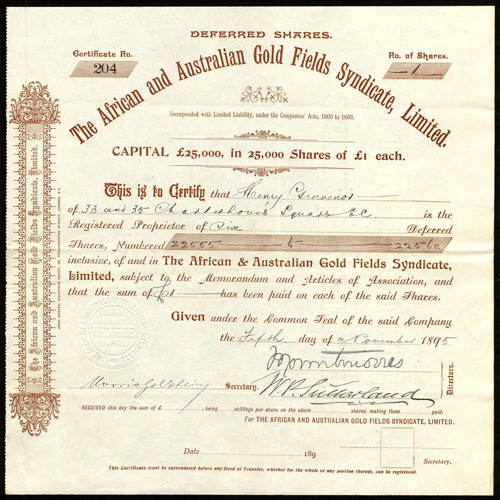 DEFERRED SHARES.
Certificate No. No. of Shares.
204 1
The African and Australian Gold Fields Syndicate, Limited.
Incorporated with Limited Liability, under the Companies' Acts, 1860 to 1893.
CAPITAL £25,000, in 25,000 Shares of £1 each.
This is to Certify that Henry
of 33 and 35 Charterhouse Square E.C. is the
Registered Proprietor of Deferred
Shares, Numbered 22555 to 22560
inclusive, of and in The African & Australian Gold Fields Syndicate,
Limited, subject to the Memorandum and Articles of Association, and
that the sum of £1 has been paid on each of the said Shares.
Given under the Common Seal of the said Company
the Fifth day of November 1895
Directors.
Secretary. W P Sutherland
RECEIVED this day the sum of £ , being shillings per share on the above shares, making them paid.
For THE AFRICAN AND AUSTRALIAN GOLD FIELDS SYNDICATE, LIMITED.
Date 189 Secretary.
This Certificate must be surrendered before any Deed of Transfer, whether for the whole or any portion thereof, can be registered.
The African and Australian Gold Fields Syndicate, Limited.